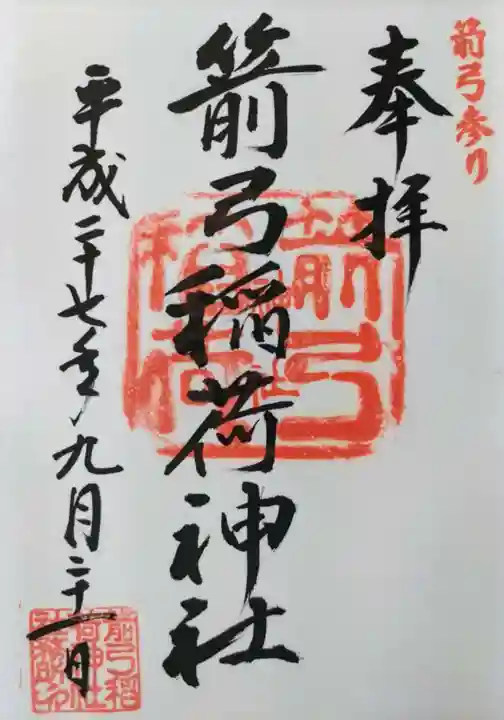 箭弓参り
奉拝
箭弓稲荷神社
平成二十七年九月二十一日
箭弓稲荷
箭弓稲荷神社